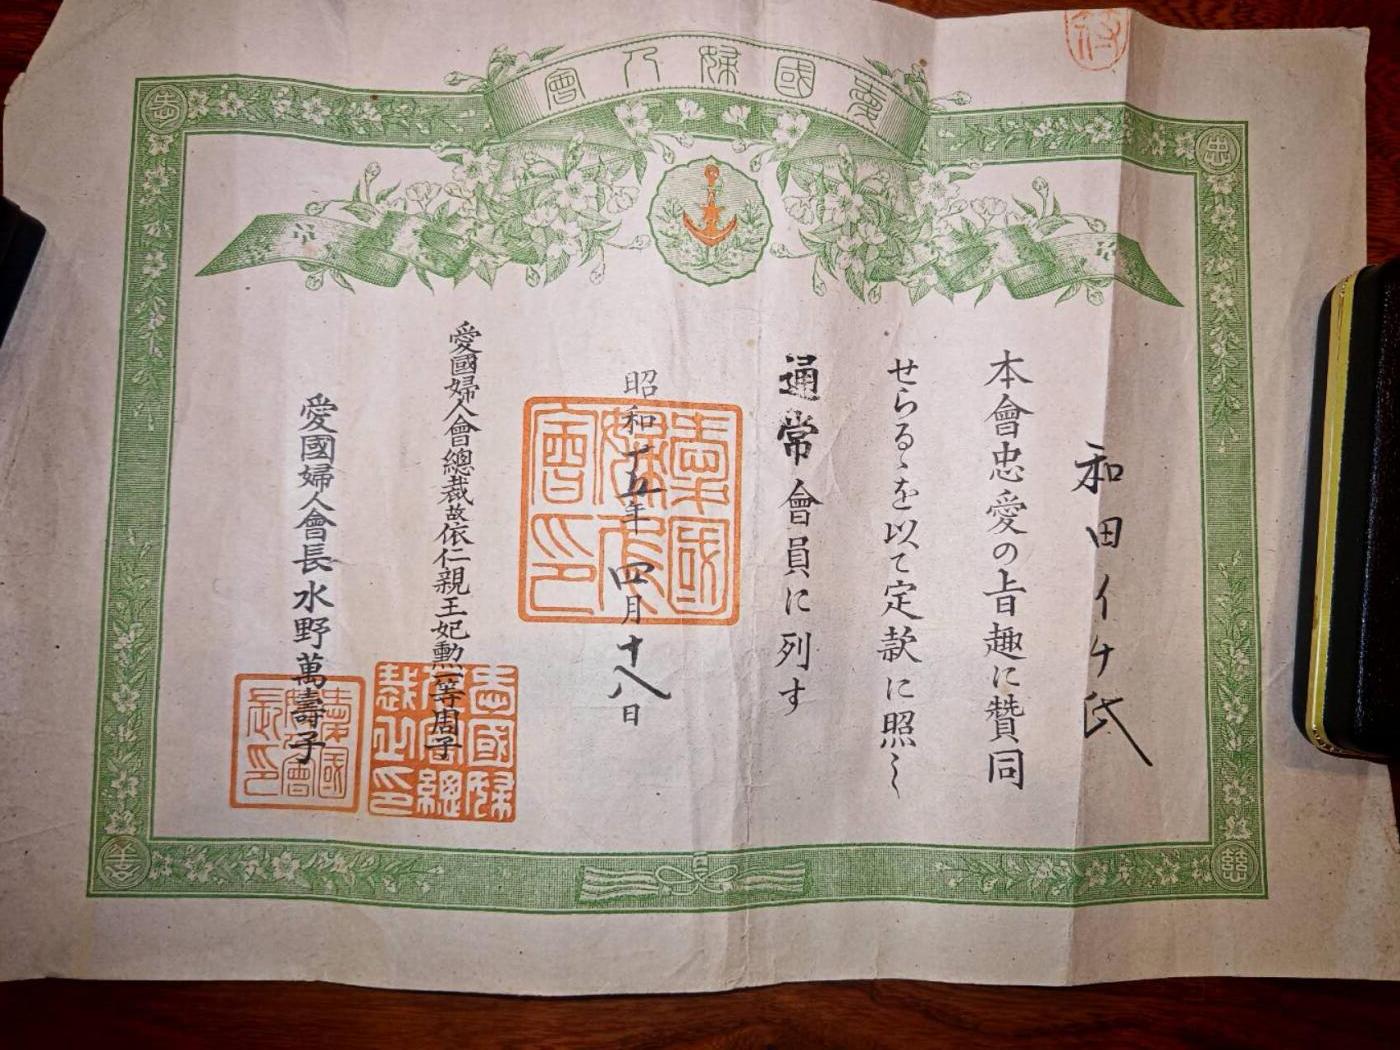 愛國婦人會
和田イケ氏
本會忠愛の旨趣に贊同
せらるゝを以て定款に照し
通常會員に列す
昭和十五年四月十八日
愛國婦人會總裁故依仁親王妃勲一等周子
愛國婦人會長水野萬壽子
愛國婦人會印
愛國婦人會總裁之印
愛國婦人會長印
忠
慈
善